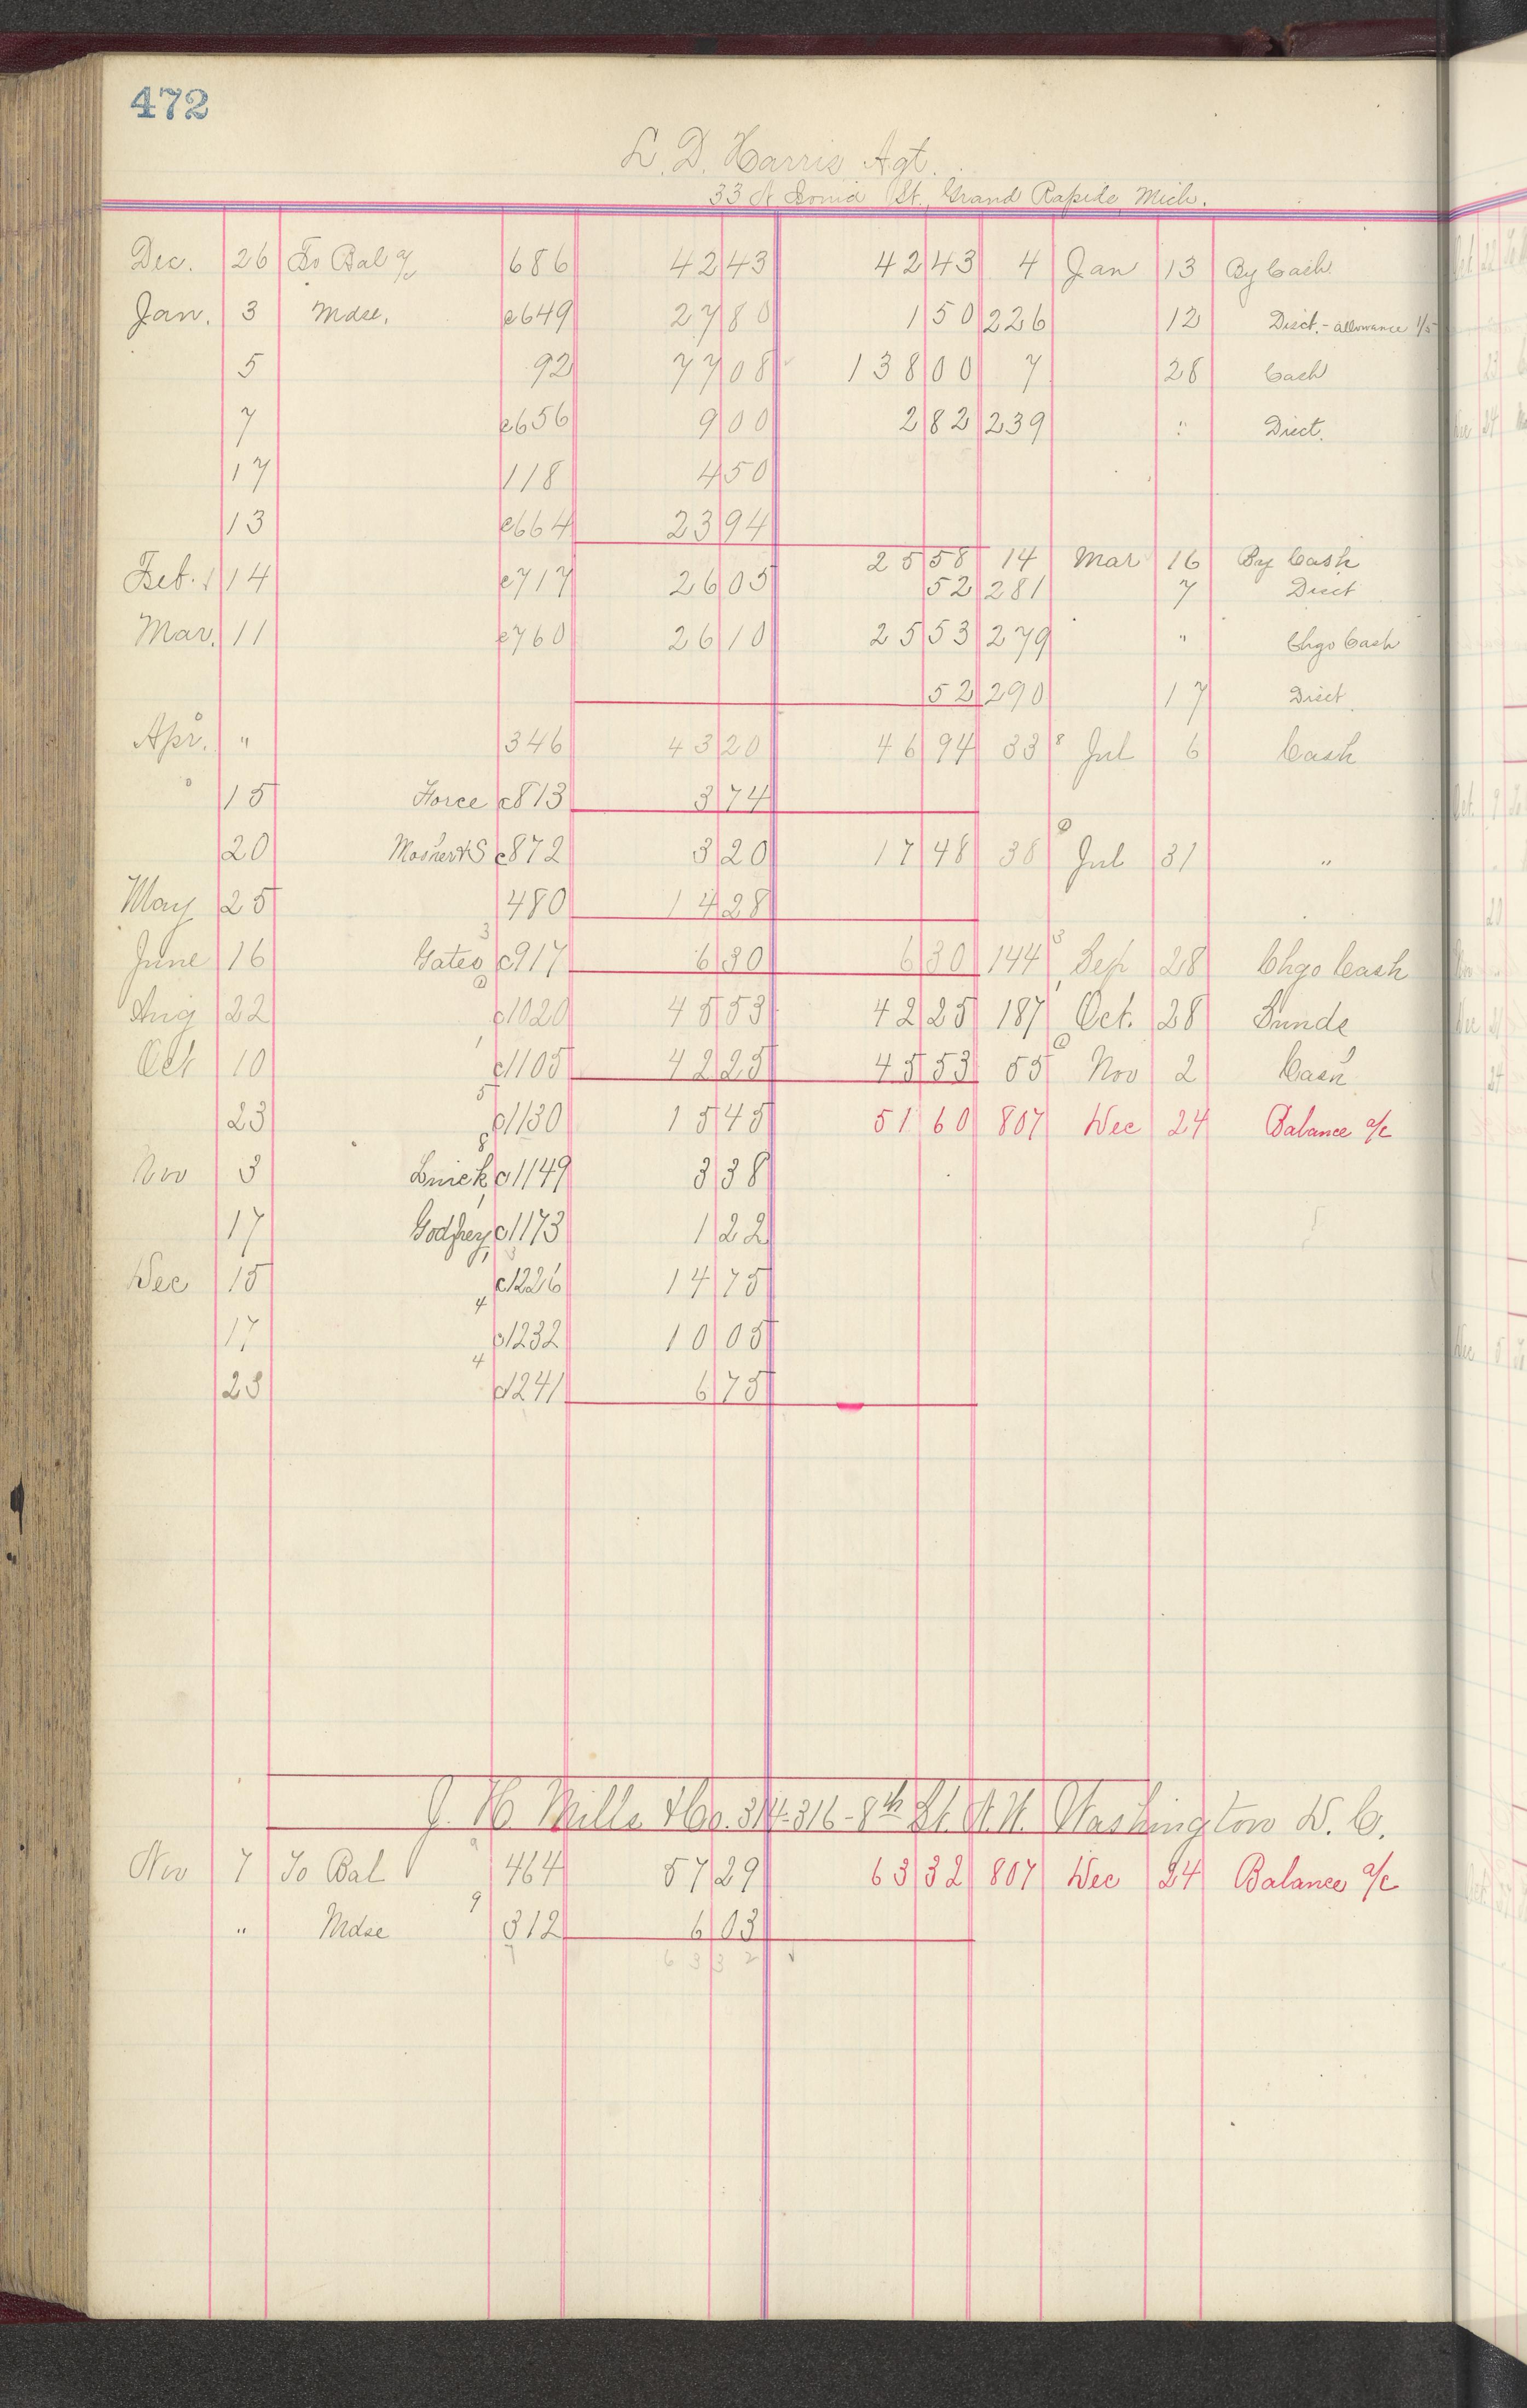 472
L. D. Harris Agt.
33 N Ionia St. Grand Rapids Mich.
Dec. 26 To Bal a/c 686 42 43 42 43 4 Jan 13 By Cash
Jan. 3 Mdse. c649 27 80 1 50 226 12 Disct. - allowance 1/5
5 92 77 08 138 00 7 28 Cash
7 c656 9 00 2 82 239 " Disct.
17 118 4 50
13 c664 23 94
25 58 14 Mar 16 By Cash
Feb. 14 c717 26 05 52 281 7 Disct
Mar. 11 c760 26 10 25 53 279 " Chgo Cash
52 290 17 Disct.
Apr. " 346 43 20 46 94 33 8 Jul 6 Cash
15 Force c813 3 74
20 c872 3 20 17 48 38 Jul 31 "
May 25 480 14 28
June 16 Gates 3 c917 6 30 6 30 144 3 Sep 28 Chgo Cash
Aug 22 c1020 45 53 42 25 187 Oct. 28 Sunds
Oct 10 c1105 42 25 45 53 55 Nov 2 Cash
23 5 c1130 15 45 51 60 807 Dec 24 Balance a/c
Nov 3 8 c1149 3 38
17 Godfrey c1173 1 22
Dec 15 c1226 14 75
17 4 c1232 10 05
23 4 c1241 6 75
J. H. Mills & Co. 314-316-8th St. N.W. Washington D.C.
Nov 7 To Bal 464 57 29 63 32 807 Dec 24 Balance a/c
" Mdse 9 312 6 03
63 32